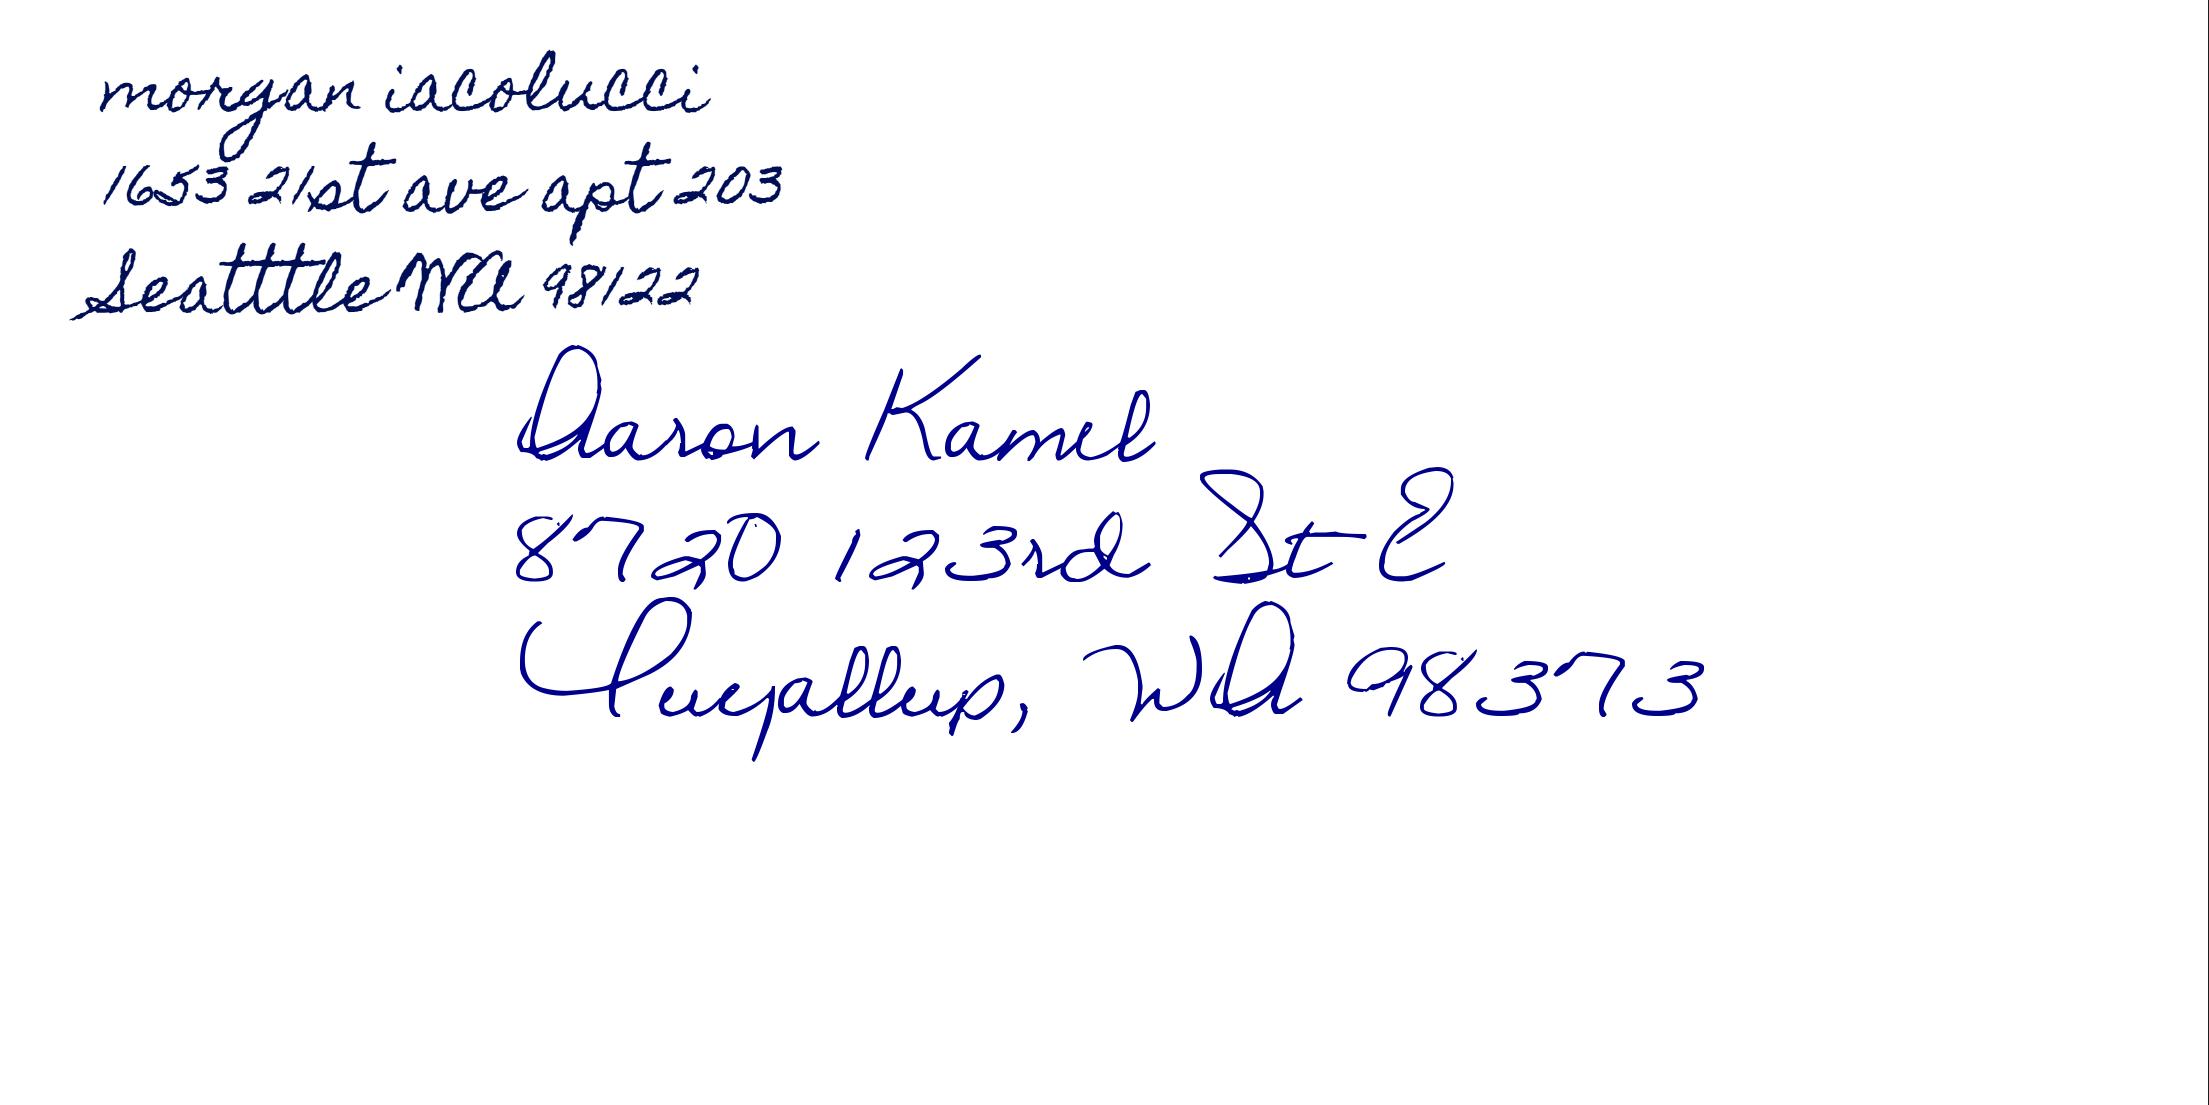 morgan iacolucci
1653 21st ave apt 203
Seatttle WA 98122
Aaron Kamel
8720 123rd St E
Puyallup, WA 98373